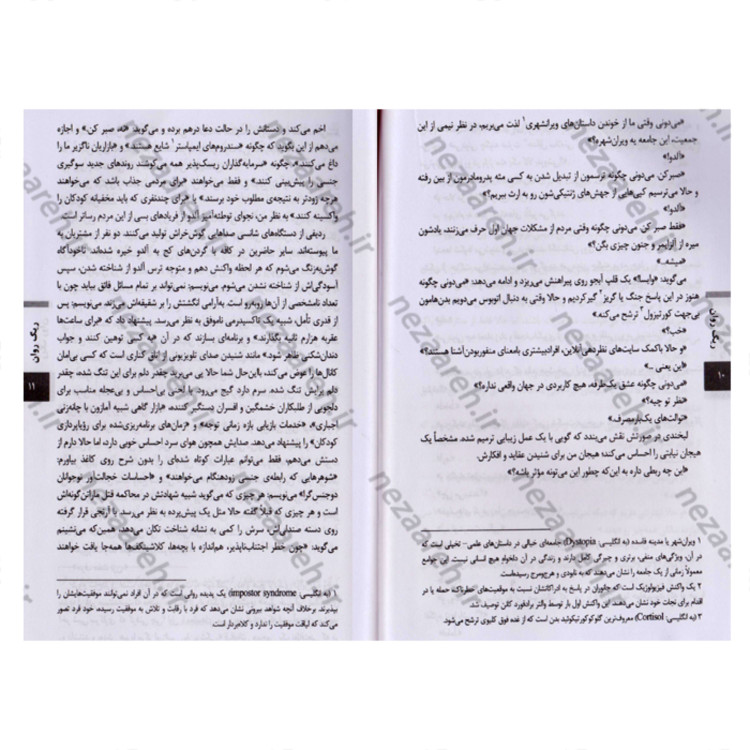 «می‌دونی وقتی ما از خوندن داستان‌های ویرانشهری۱ لذت می‌بریم، در نظر نیمی از این
جمعیت، این جامعه یه ویران‌شهره؟»
«آلدو!»
«صبر کن. می‌دونی چگونه ترسمون از تبدیل شدن به کسی مثه پدرومادرمون از بین رفته
و حالا می‌ترسیم کپی‌هایی از جهش‌های ژنتیکی‌شون رو به ارث ببریم؟»
«آلدو!»
«فقط صبر کن. می‌دونی چگونه وقتی مردم از مشکلات جهان اول حرف می‌زنند، یادشون
میره از آلزایمر و جنون چیزی بگن؟»
«میشه.»
می‌گوید: «وایسا!» یک قلپ آبجو روی پیراهنش می‌ریزد و ادامه می‌دهد: «می‌دونی چگونه
هنوز در این پاسخ جنگ یا گریز۲ گیر کردیم و حالا وقتی به دنبال اتوبوس می‌دویم بدن‌هامون
بی‌جهت کورتیزول۳ ترشح می‌کنه»
«خب؟»
«و حالا باکمک سایت‌های نظردهی آنلاین، افراد بیشتری بامعنای منفوربودن آشنا هستند؟»
«این یعنی ..»
«می‌دونی چگونه عشق یک‌طرفه، هیچ کاربردی در جهان واقعی نداره؟»
«نظر تو چیه؟»
«توالت‌های یک‌بارمصرف.»
لبخندی در صورتش نقش می‌بندد که گویی با یک عمل زیبایی ترمیم شده. مشخصاً یک
هیجان نیابتی را احساس می‌کند؛ هیجان من برای شنیدن عقاید و افکارش.
«این چه ربطی داره به این‌که چطور این می‌تونه مؤثر باشه؟»
۱ ویران‌شهر یا مدینه فاسده (به انگلیسی: Dystopia) جامعه‌ای خیالی در داستان‌های علمی- تخیلی است که
در آن، ویژگی‌های منفی، برتری و چیرگی کامل دارند و زندگی در آن دلخواه هیچ انسانی نیست. این جوامع
معمولاً زمانی از یک جامعه را نشان می‌دهند که به نابودی و هرج‌ومرج رسیده‌است.
۲ یک واکنش فیزیولوژیک است که جانوران در پاسخ به ادراکاتشان نسبت به موقعیت‌های خطرناک حمله یا در
اقدام برای نجات خود نشان می‌دهند. این واکنش اول بار توسط والتر برادفورد کانن توصیف شد.
۳ (به انگلیسی: Cortisol) معروف‌ترین گلوکوکورتیکوئید بدن است که از غده فوق کلیوی ترشح می‌شود.
ریگ روان
۱۰
اخم می‌کند و دستانش را در حالت دعا درهم برده و می‌گوید: «نه، صبر کن.» و اجازه
می‌دهم از این بگوید که چگونه «سندروم‌های ایمپاستر۱ شایع هستند» و «بازاریان ناگزیر ما را
داغ می‌کنند»، چگونه «سرمایه‌گذاران ریسک‌پذیر همه می‌کوشند روندهای جدید سوگیری
جنسی را پیش‌بینی کنند.» و فقط می‌خواهند «برای مردمی جذاب باشد که می‌خواهند
هرچه زودتر به نتیجه‌ی مطلوب خود برسند.» یا «برای چندنفری که باید مخفیانه کودکان را
واکسینه کنند.» به نظر من، نجوای توطئه‌آمیز آلدو از فریادهای بسی از این مردم رساتر است.
ردیفی از دستگاه‌های شانسی صداهایی گوش‌خراش تولید می‌کنند. دو نفر از مشتریان به
ما پیوسته‌اند. سایر حاضرین در کافه با گردن‌های کج به آلدو خیره شده‌اند. ناخودآگاه
گوش‌به‌زنگ می‌شوم که هر لحظه واکنش دهم و متوجه ترس آلدو از شناخته شدن، سپس
آسودگی‌اش از شناخته نشدن می‌شوم. می‌نویسم: نمی‌تواند بر تمام مسائل فائق بیاید چون با
تعداد نامشخصی از آن‌ها روبه‌رو است. به‌آرامی انگشتش را بر شقیقه‌اش می‌زند. می‌نویسم: پس
از قدری تأمل، شبیه یک تاکسیدرمی ناموفق به نظر می‌رسد. پیشنهاد داد که «برای ساعت‌ها
عقربه هزارم ثانیه بگذارند.» و «برنامه‌ای بسازند که در آن همه کسی توهین کنند و جواب
دندان‌شکنی ظاهر شود.» مانند شنیدن صدای تلویزیونی از اتاق کناری است که کسی بی‌امان
کانال‌ها را عوض می‌کند، بااین‌حال شما حالا پی می‌برید چقدر دلم برای این تنگ شده، چقدر
دلم برایش تنگ شده. سرم دارد گیج می‌رود. با لحنی بی‌احساس و بی‌عجله مناسب برای
دلجویی از طلبکاران خشمگین و افسران دستگیر کننده، «بازار گاهی شبیه آمازون با چله‌زنی
اجباری»، «خدمات بازیابی بازه زمانی توجه» و «رمان‌های برنامه‌ریزی‌شده برای رؤیاپردازی
کودکان» را پیشنهاد می‌دهد. صدایش همچون هوای سرد احساس خوبی دارد، اما حالا دارم از
دستش می‌دهم، فقط می‌توانم عبارات کوتاه شده‌ای را بدون شرح روی کاغذ بیاورم:
«شوهرهایی که رابطه‌ی جنسی زودهنگام می‌خواهند» و «احساسات خجالت‌آور نوجوانان
دوجنس‌گرا!» می‌نویسم: هر چیزی که می‌گوید شبیه شهادتش در محاکمه قتل مارتان گونه‌اش
است و هر چیزی که قبلاً گفته حالا مثل یک پیش‌پرده به نظر می‌رسد. با آرنجی قرار گرفته
روی دسته صندلی‌اش، سرش را کمی به نشانه شناخت تکان می‌دهد. همین‌که می‌نشینم
می‌گوید: «چون خطر اجتناب‌ناپذیر، هم‌اندازه با بچه‌ها، کلاشینکف‌ها همه‌جا یافت خواهند
۱ (به انگلیسی: impostor syndrome) یک پدیده روانی است که در آن افراد نمی‌توانند موفقیت‌هایشان را
بپذیرند. برخلاف آنچه شواهد بیرونی نشان می‌دهد که فرد با رقابت و تلاش به موفقیت رسیده، خود فرد تصور
می‌کند که لیاقت موفقیت را ندارد و کلاهبردار است.
ریگ روان
۱۱
nezaareh.ir